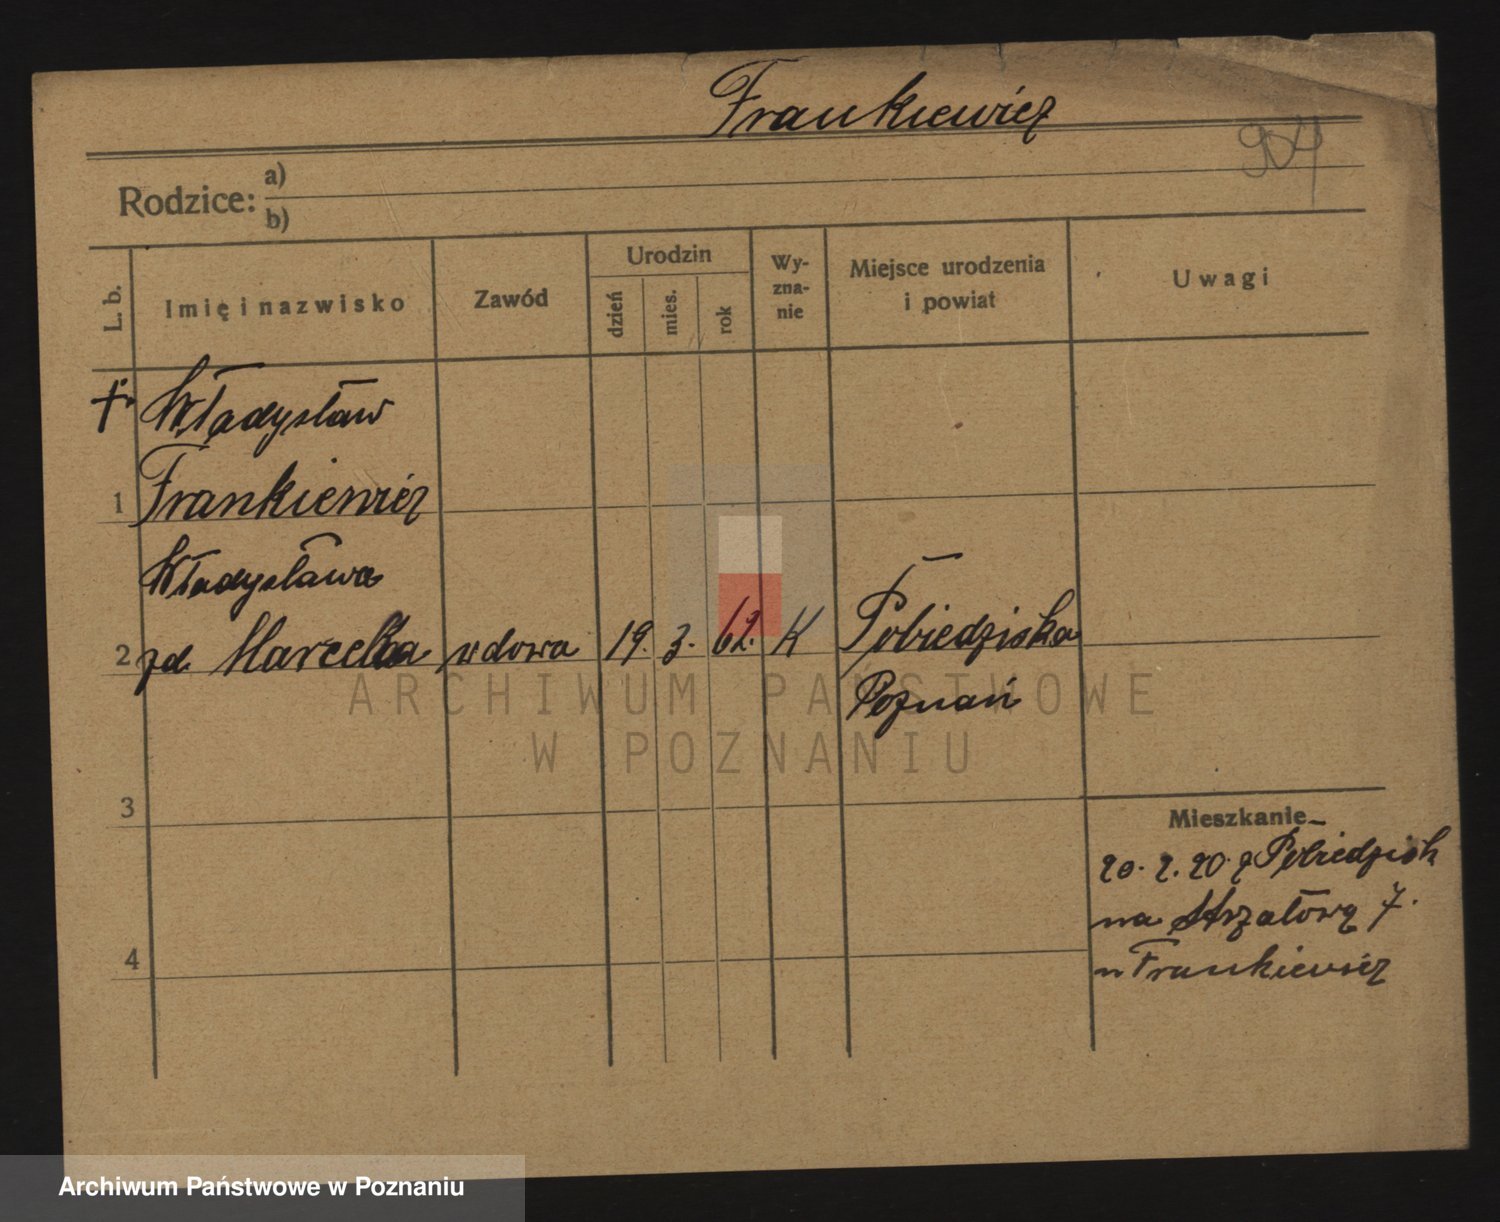 Frankiewicz
904
Rodzice: a)
b)
L. b. Imię i nazwisko Zawód Urodzin dzień mies. rok Wy-zna-nie Miejsce urodzenia i powiat Uwagi
† Władysław
1 Frankiewicz
Władysława
2 zd. Marcelka wdowa 19. 3. 62. K Pobiedziska
Poznań
ARCHIWUM PAŃSTWOWE
W POZNANIU
3
Mieszkanie
20. 2. 20. z Pobiedzisk
na Strzałową 7.
4
u Frankiewicz
Archiwum Państwowe w Poznaniu